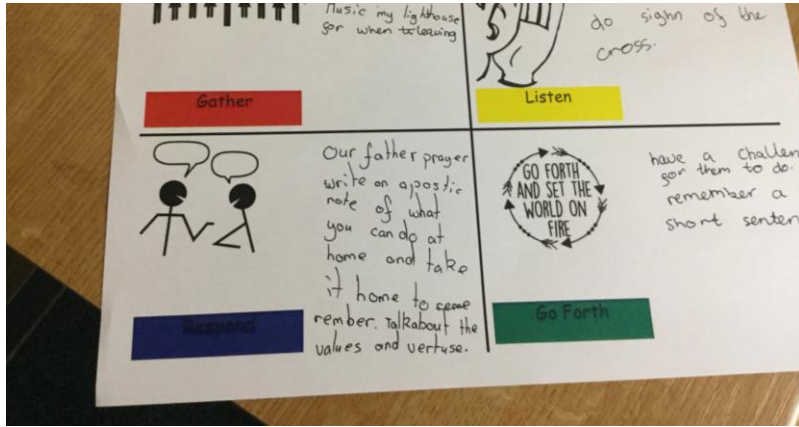 Music my lighthouse
for when leaving
Gather
do sighn of the
cross.
Listen
Our father prayer
write on a postic
note of what
you can do at
home and take
it home to
rember. Talkabout the
values and vertuse.
Respond
GO FORTH
AND SET THE
WORLD ON
FIRE
have a Challen
for them to do.
remember a
short senten
Go Forth